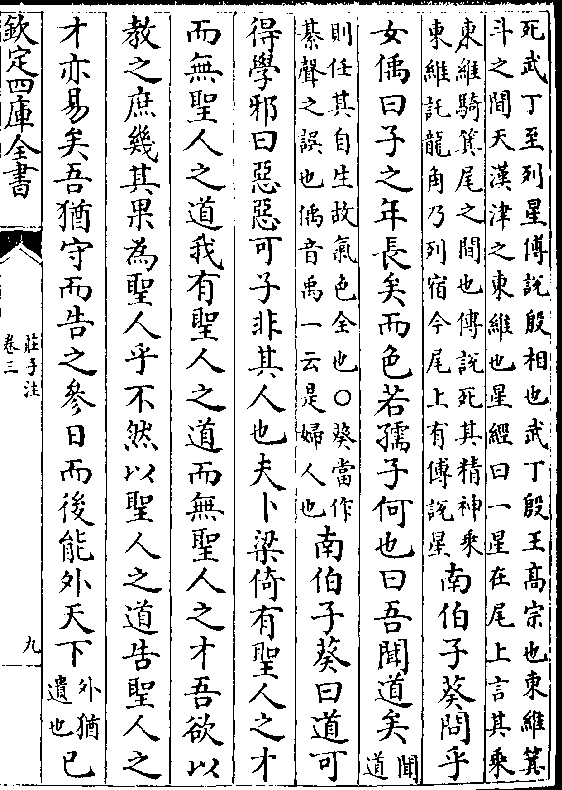 死武丁至列星傅說殷相也武丁殷王高宗也東維箕
斗之間天漢津之東維也星經曰一星在尾上言其乘
東維騎箕尾之間也傅說死其精神乘
東維託龍角乃列宿今尾上有傅說星
南伯子葵問乎
女偊曰子之年長矣而色若孺子何也曰吾聞道矣
聞
道
則任其自生故氣色全也○葵當作
綦聲之誤也偊音禹一云是婦人也
南伯子葵曰道可
得學邪曰惡惡可子非其人也夫卜梁倚有聖人之才
而無聖人之道我有聖人之道而無聖人之才吾欲以
教之庶幾其果為聖人乎不然以聖人之道告聖人之
才亦易矣吾猶守而告之參日而後能外天下
外猶
遺也
已
欽定四庫全書
莊子注
卷三
九